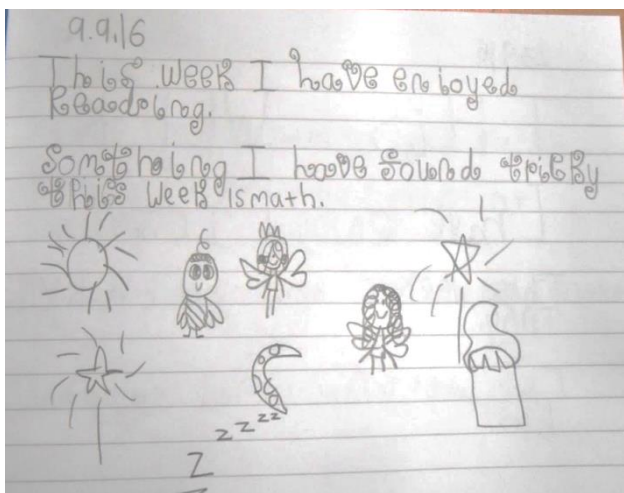 9.9.16
This week I have enjoyed
Reading.
Somthing I have found tricky
this week is math.
z z z z
Z